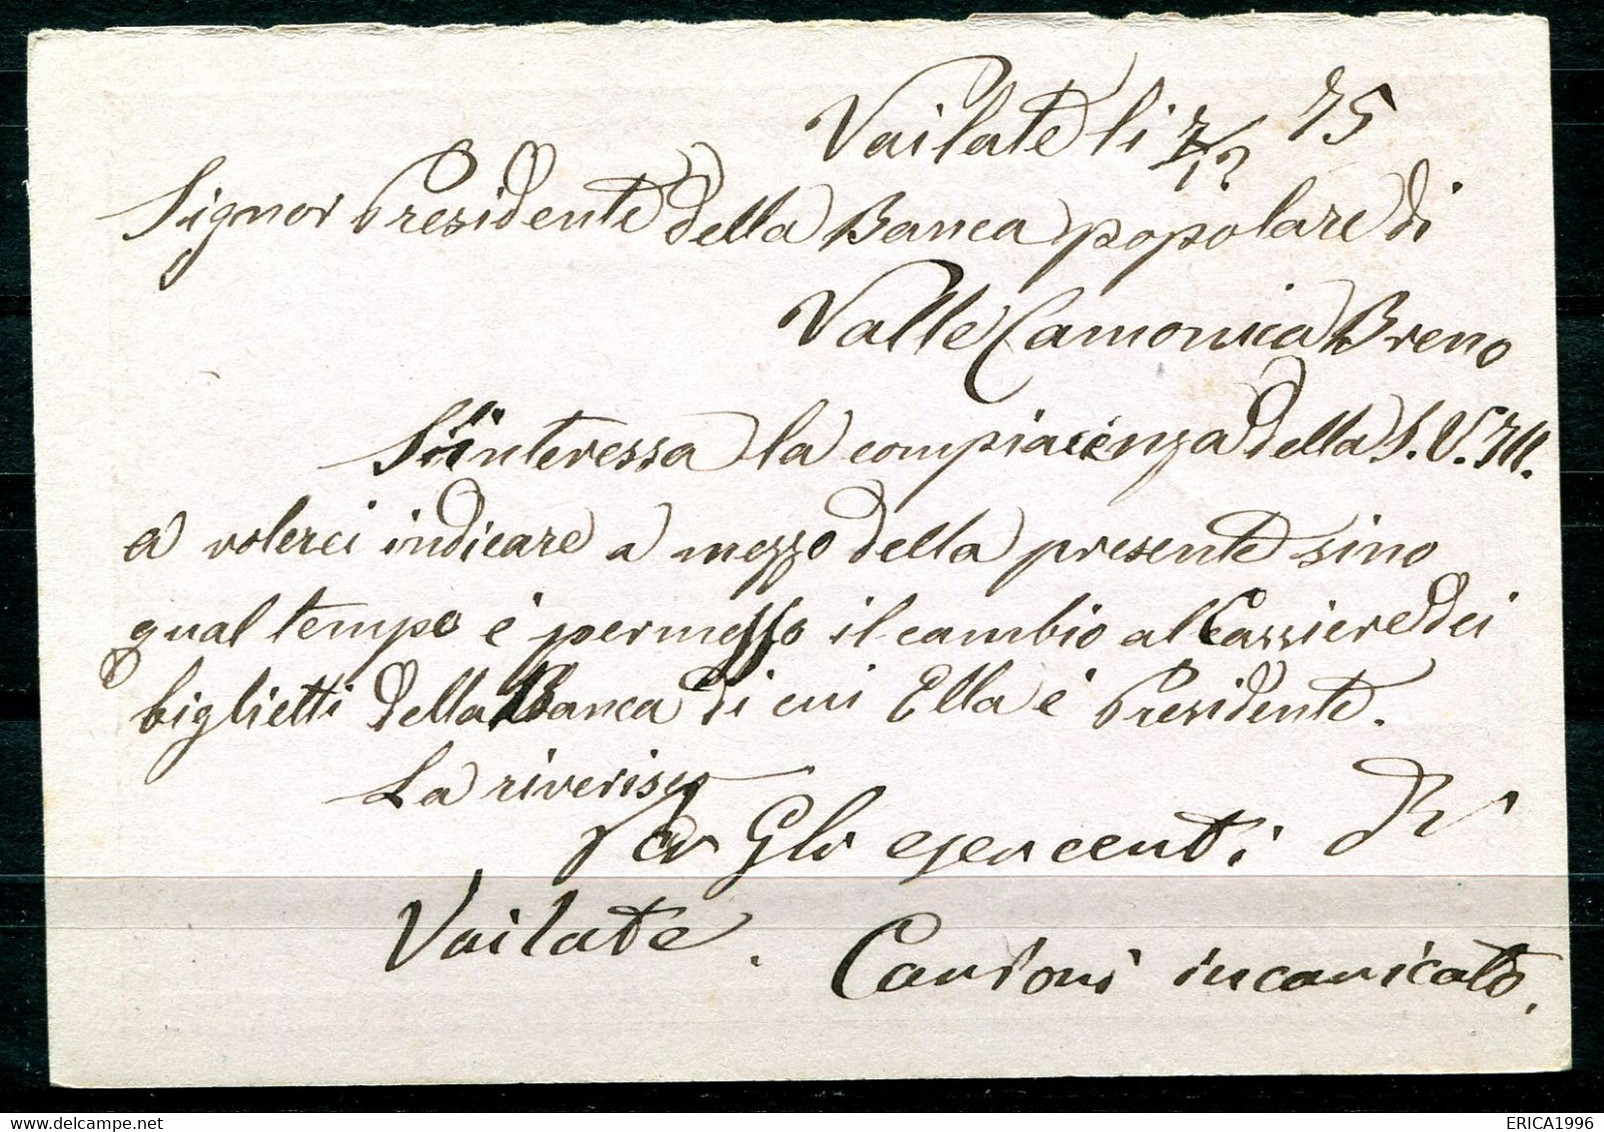 Vailate li 7/12 75
Signor Presidente della Banca popolare di
Valle Camonica Breno
S'interessa la compiacenza della S. V. Ill.
a volerci indicare a mezzo della presente sino
qual tempo è permesso il cambio al Cassiere dei
biglietti della Banca di cui Ella è Presidente.
La riverisco
per Gli esercenti di
Vailate. incaricato.
ERICA1996